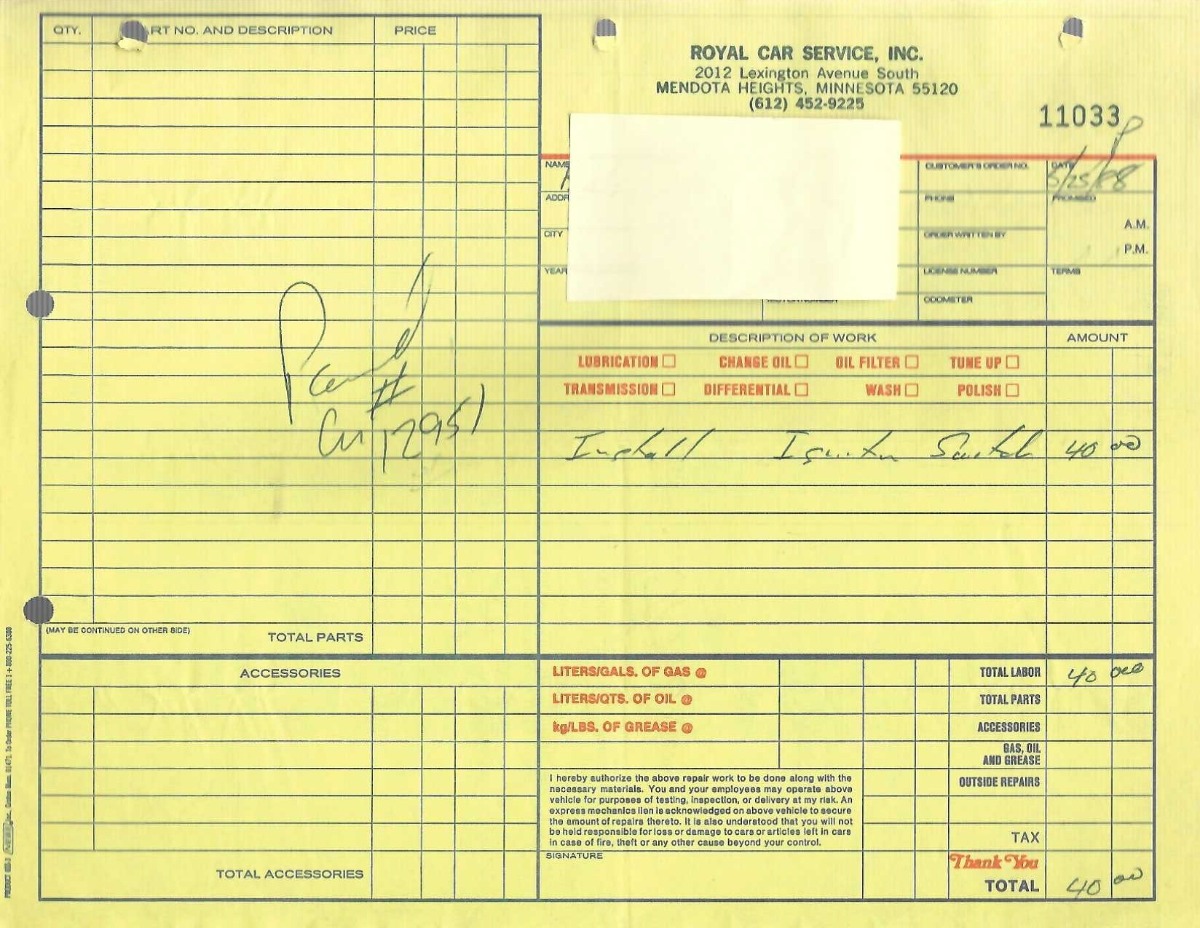 QTY. PART NO. AND DESCRIPTION PRICE
ROYAL CAR SERVICE, INC.
2012 Lexington Avenue South
MENDOTA HEIGHTS, MINNESOTA 55120
(612) 452-9225
11033
NAME
CUSTOMER'S ORDER NO.
DATE
5/25/88
ADDR
PHONE
PROMISED
A.M.
CITY
ORDER WRITTEN BY
P.M.
YEAR
LICENSE NUMBER
TERMS
MOTOR NUMBER
ODOMETER
DESCRIPTION OF WORK AMOUNT
LUBRICATION CHANGE OIL OIL FILTER TUNE UP
TRANSMISSION DIFFERENTIAL WASH POLISH
Install Ignition Switch 40 00
Paid
#
12951
(MAY BE CONTINUED ON OTHER SIDE) TOTAL PARTS
ACCESSORIES
TOTAL ACCESSORIES
LITERS/GALS. OF GAS @
LITERS/QTS. OF OIL @
kg/LBS. OF GREASE @
TOTAL LABOR 40 00
TOTAL PARTS
ACCESSORIES
GAS, OIL
AND GREASE
OUTSIDE REPAIRS
TAX
I hereby authorize the above repair work to be done along with the
necessary materials. You and your employees may operate above
vehicle for purposes of testing, inspection, or delivery at my risk. An
express mechanics lien is acknowledged on above vehicle to secure
the amount of repairs thereto. It is also understood that you will not
be held responsible for loss or damage to cars or articles left in cars
in case of fire, theft or any other cause beyond your control.
SIGNATURE
Thank You
TOTAL 40 00